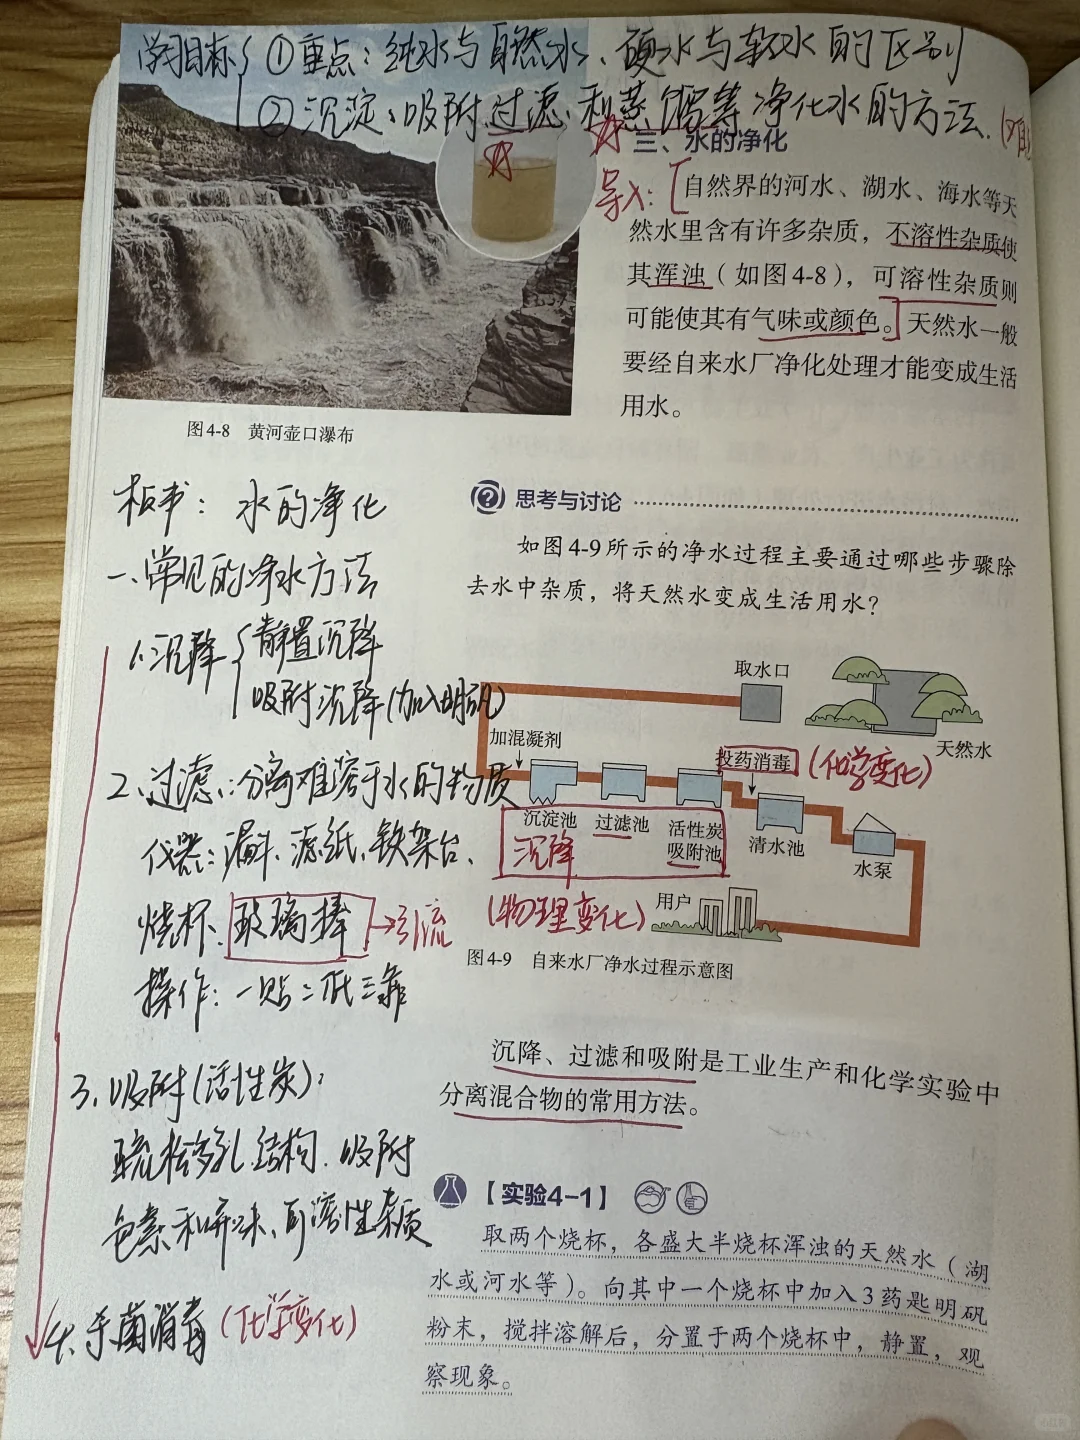 学习目标 ①重点：纯水与自然水、硬水与软水的区别
②沉淀、吸附、过滤和蒸馏等净化水的方法.
三、水的净化
导入：
自然界的河水、湖水、海水等天
然水里含有许多杂质，不溶性杂质使
其浑浊（如图4-8），可溶性杂质则
可能使其有气味或颜色。天然水一般
要经自来水厂净化处理才能变成生活
用水。
图4-8 黄河壶口瀑布
板书：水的净化
一、常见的净水方法
1.沉降 静置沉降
吸附沉降(加入明矾)
2.过滤：分离难溶于水的物质
仪器：漏斗、滤纸、铁架台、
烧杯、玻璃棒→引流
操作：一贴二低三靠
3.吸附(活性炭)：
疏松多孔结构.吸附
色素和异味、可溶性杂质
4.杀菌消毒(化学变化)
思考与讨论
如图4-9所示的净水过程主要通过哪些步骤除
去水中杂质，将天然水变成生活用水？
取水口
天然水
加混凝剂
投药消毒
(化学变化)
沉淀池
过滤池
活性炭
吸附池
沉降
清水池
水泵
(物理变化)
用户
图4-9 自来水厂净水过程示意图
沉降、过滤和吸附是工业生产和化学实验中
分离混合物的常用方法。
【实验4-1】
取两个烧杯，各盛大半烧杯浑浊的天然水（湖
水或河水等）。向其中一个烧杯中加入3药匙明矾
粉末，搅拌溶解后，分置于两个烧杯中，静置，观
察现象。